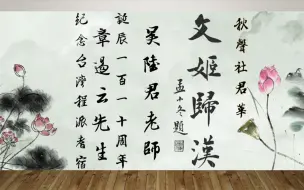 秋聲社君華
文姬歸漢
孟小冬題
吴陸君老師
誕辰一百一十周年
章遏云先生
紀念台灣程派耆宿